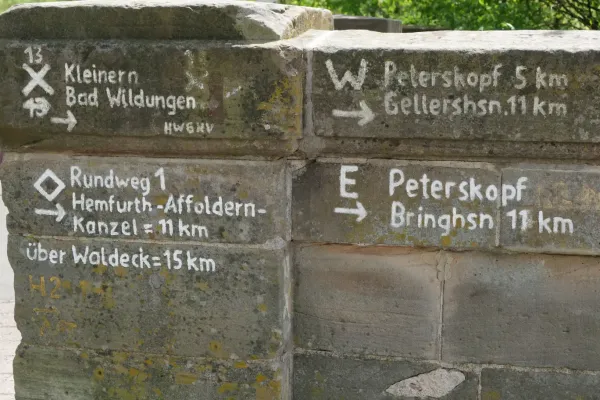 13
X Kleinern
13 → Bad Wildungen
HWGHV
W Peterskopf 5 km
→ Gellershsn. 11 km
◇ Rundweg 1
→ Hemfurth-Affoldern-
Kanzel = 11 km
über Waldeck = 15 km
E Peterskopf
→ Bringhsn 11 km